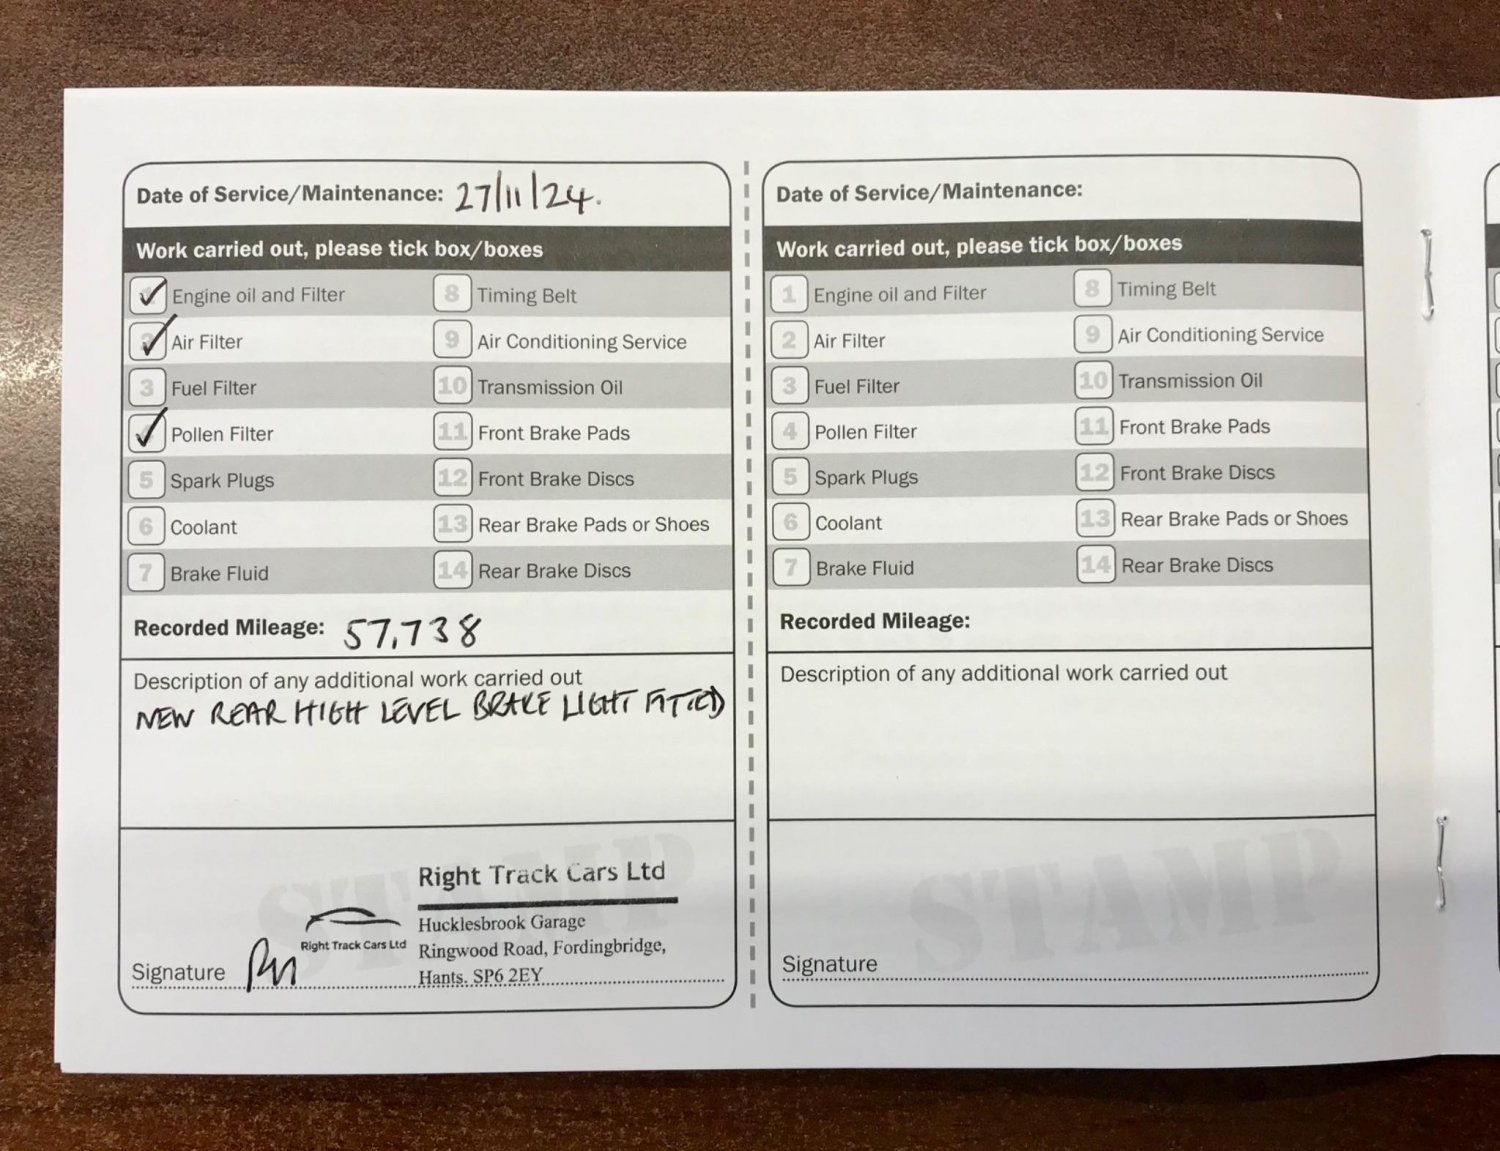 Date of Service/Maintenance: 27/11/24.
Work carried out, please tick box/boxes
Engine oil and Filter
8 Timing Belt
Air Filter
9 Air Conditioning Service
3 Fuel Filter
10 Transmission Oil
Pollen Filter
11 Front Brake Pads
5 Spark Plugs
12 Front Brake Discs
6 Coolant
13 Rear Brake Pads or Shoes
7 Brake Fluid
14 Rear Brake Discs
Recorded Mileage: 57,738
Description of any additional work carried out
NEW REAR HIGH LEVEL BRAKE LIGHT FITTED
STAMP
Right Track Cars Ltd
Hucklesbrook Garage
Right Track Cars Ltd
Ringwood Road, Fordingbridge,
Hants. SP6 2EY
Signature
Date of Service/Maintenance:
Work carried out, please tick box/boxes
1 Engine oil and Filter
8 Timing Belt
2 Air Filter
9 Air Conditioning Service
3 Fuel Filter
10 Transmission Oil
4 Pollen Filter
11 Front Brake Pads
5 Spark Plugs
12 Front Brake Discs
6 Coolant
13 Rear Brake Pads or Shoes
7 Brake Fluid
14 Rear Brake Discs
Recorded Mileage:
Description of any additional work carried out
STAMP
Signature